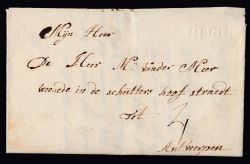 Mijn Heer
De Heer Mr. vander Meer
woonende in de schutters hoof straedt
tot
Antwerpen